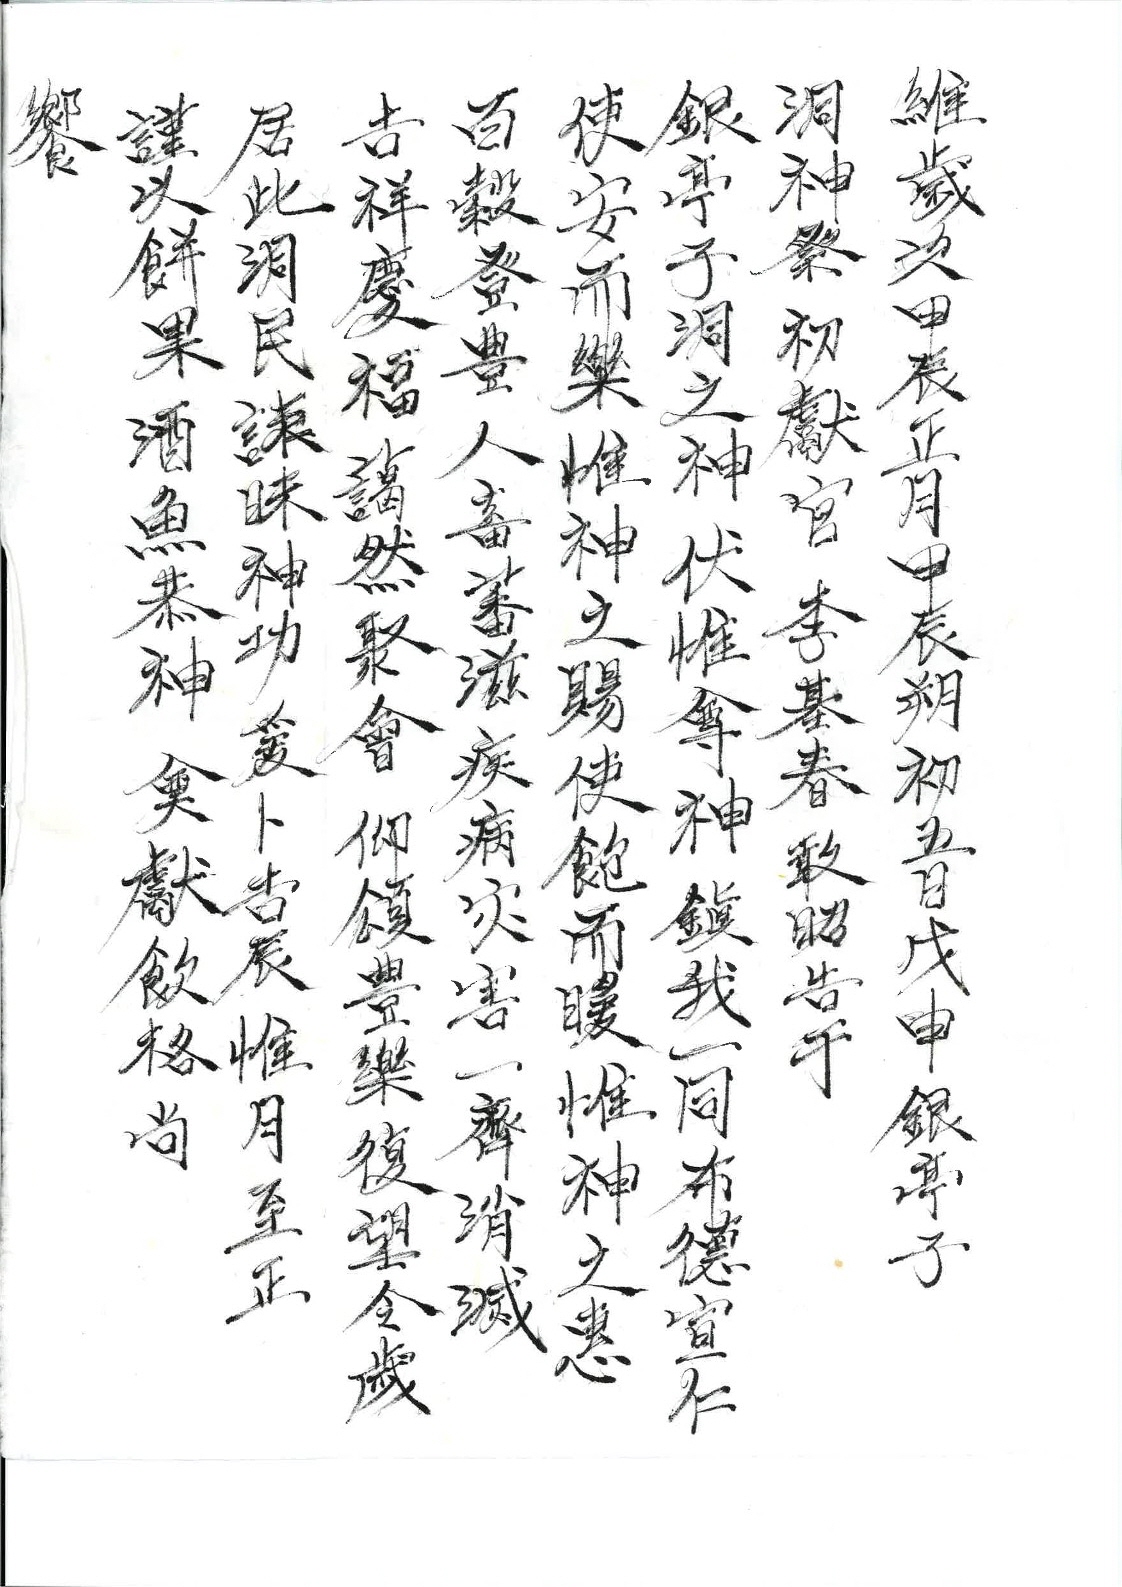 維歲次甲辰正月甲辰朔初五日戊申銀亭子
洞神祭初獻官 李基春 敢昭告于
銀亭子洞之神 伏惟尊神 鎭我一同布德宣仁
使安而樂惟神之賜使飽而暖惟神之惠
百穀登豊人畜蕃滋疾病灾害一齊消滅
吉祥慶福藹然聚會 仰頌豊樂復望今歲
居此洞民誄昧神功 爰卜吉辰惟月至正
謹以餠果酒魚恭神奠獻歆格尚
饗